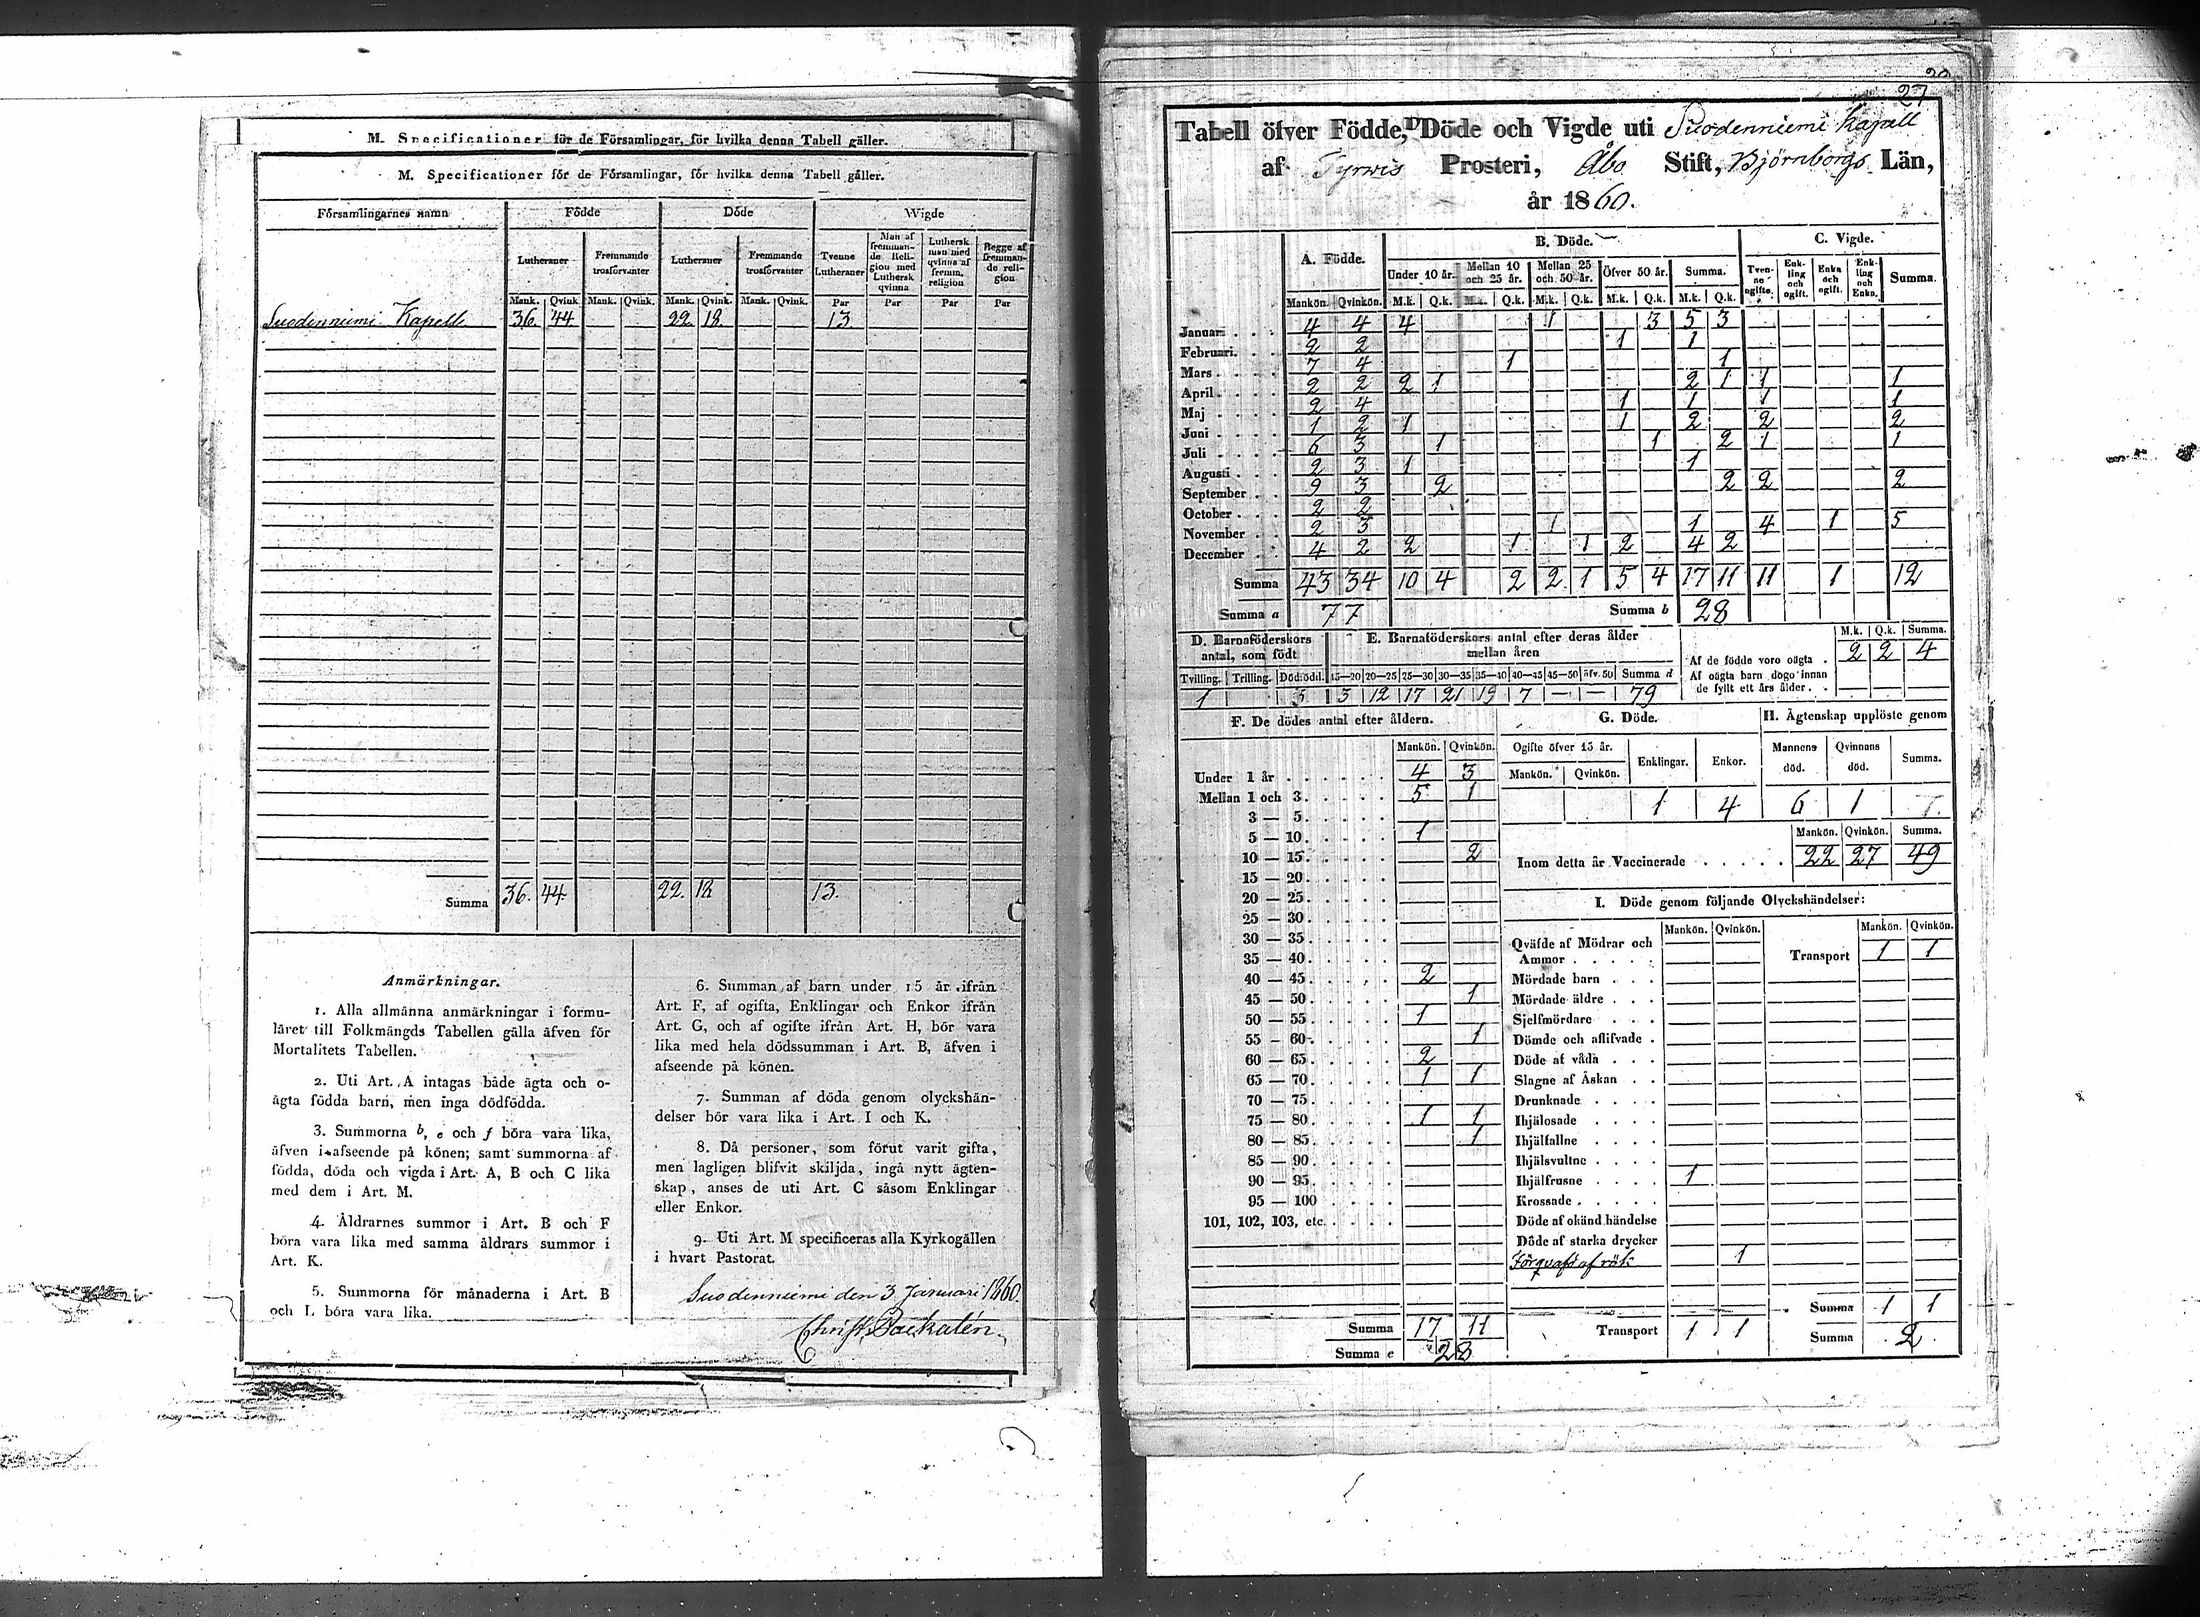 M. Specificationer för de Församlingar, för hvilka denna Tabell gäller.
M. Specificationer för de Församlingar, för hvilka denna Tabell gäller.
Församlingarnes namn Födde Döde Wigde
Lutheraner Fremmande trosförvanter Lutheraner Fremmande trosförvanter Tvenne Lutheraner Man af fremmande Religion med Luthersk qvinna Luthersk man med qvinna af fremm. religion Begge af fremmande religion
Mank. Qvink. Mank. Qvink. Mank. Qvink. Mank. Qvink. Par Par Par Par
Suodenniemi Kapell 36. 44 22. 18. 13
Summa 36. 44. 22. 18 13.
Anmärkningar.
1. Alla allmänna anmärkningar i formu-
läret till Folkmängds Tabellen gälla äfven för
Mortalitets Tabellen.
2. Uti Art. A intagas både ägta och o-
ägta födda barn, men inga dödfödda.
3. Summorna b, e och f böra vara lika,
äfven i afseende på könen; samt summorna af
födda, döda och vigda i Art. A, B och C lika
med dem i Art. M.
4. Åldrarnes summor i Art. B och F
böra vara lika med samma åldrars summor i
Art. K.
5. Summorna för månaderna i Art. B
och L böra vara lika.
6. Summan af barn under 15 år ifrån
Art. F, af ogifta, Enklingar och Enkor ifrån
Art. G, och af ogifte ifrån Art. H, bör vara
lika med hela dödssumman i Art. B, äfven i
afseende på könen.
7. Summan af döda genom olyckshän-
delser bör vara lika i Art. I och K.
8. Då personer, som förut varit gifta,
men lagligen blifvit skiljda, ingå nytt ägten-
skap, anses de uti Art. C såsom Enklingar
eller Enkor.
9. Uti Art. M specificeras alla Kyrkogällen
i hvart Pastorat.
Suodenniemi den 3 Januari 1860.
27
Tabell öfver Födde, Döde och Vigde uti Suodenniemi Kapell
af Tyrvis Prosteri, Åbo Stift, Björneborgs Län,
år 1860.
A. Födde. B. Döde. C. Vigde.
Under 10 år. Mellan 10 och 25 år. Mellan 25 och 50 år. Öfver 50 år. Summa. Tvenne ogifte. Enkling och ogift. Enka och ogift. Enkling och Enka. Summa.
Mankön. Qvinkön. M.k. Q.k. M.k. Q.k. M.k. Q.k. M.k. Q.k. M.k. Q.k.
Januari 4 4 4 1 3 5 3
Februari. 2 2 1 1
Mars 7 4 1 1
April 2 2 2 1 2 1 1 1
Maj 2 4 1 1 1 1
Juni 1 2 1 1 2 2 2
Juli 6 3 1 1 2 1 1
Augusti 2 3 1 1
September 9 3 2 2 2 2
October 2 2
November 2 3 1 1 4 1 5
December 4 2 2 1 1 2 4 2
Summa 43 34 10 4 2 2 1 5 4 17 11 11 1 12
Summa a 77 Summa b 28
D. Barnaföderskors antal, som födt
Tvilling. Trilling. Dödfödd.
1 3
E. Barnaföderskors antal efter deras ålder mellan åren
15—20 20—25 25—30 30—35 35—40 40—45 45—50 öfv. 50 Summa d
3 12 17 21 19 7 — — 79
M.k. Q.k. Summa.
Af de födde voro oägta 2 2 4
Af oägta barn dogo innan
de fyllt ett års ålder
F. De dödes antal efter åldern.
Mankön. Qvinkön.
Under 1 år 4 3
Mellan 1 och 3 5 1
3 — 5
5 — 10 1
10 — 15 2
15 — 20
20 — 25
25 — 30
30 — 35
35 — 40
40 — 45 2
45 — 50 1
50 — 55 1
55 — 60 1
60 — 65 2
65 — 70 1 1
70 — 75
75 — 80 1 1
80 — 85 1
85 — 90
90 — 95
95 — 100
101, 102, 103, etc.
Summa 17 11
Summa e 28
G. Döde.
Ogifte öfver 15 år. Enklingar. Enkor.
Mankön. Qvinkön.
1 4
H. Ägtenskap upplöste genom
Mannens död. Qvinnans död. Summa.
6 1 7.
Mankön. Qvinkön. Summa.
Inom detta år Vaccinerade 22 27 49
I. Döde genom följande Olyckshändelser:
Mankön. Qvinkön. Mankön. Qvinkön.
Qväfde af Mödrar och
Ammor
Transport 1 1
Mördade barn
Mördade äldre
Sjelfmördare
Dömde och aflifvade
Döde af våda
Slagne af Åskan
Drunknade
Ihjälosade
Ihjälfallne
Ihjälsvultne
Ihjälfrusne 1
Krossade
Döde af okänd händelse
Döde af starka drycker
Förqvafd af rök 1
Summa 1 1
Transport 1 1 Summa 2.